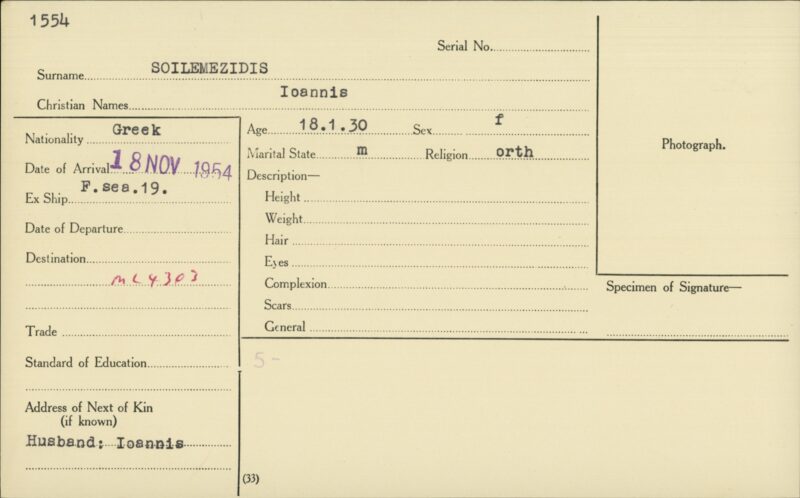 1554
Serial No.
Surname SOILEMEZIDIS
Christian Names Ioannis
Nationality Greek
Date of Arrival 18 NOV 1954
Ex Ship F.sea.19.
Date of Departure
Destination
ML4303
Trade
Standard of Education
Address of Next of Kin
(if known)
Husband: Ioannis
Age 18.1.30 Sex f
Marital State m Religion orth
Description—
Height
Weight
Hair
Eyes
Complexion
Scars
General
5-
(33)
Photograph.
Specimen of Signature—